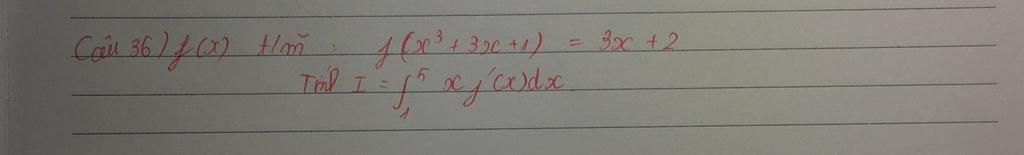 Câu 36) f(x) t/mãn : f(x³ + 3x + 1) = 3x + 2
Tính I = ∫₁⁵ x f'(x)dx.